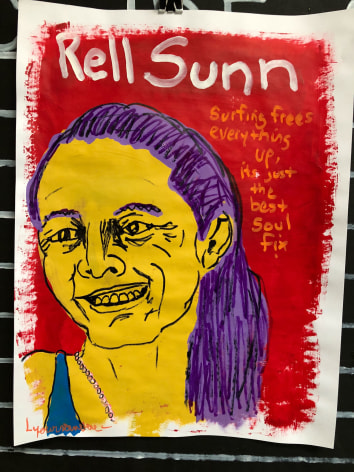 Rell Sunn
Surfing frees
everything
up,
its just
the
best
Soul
fix